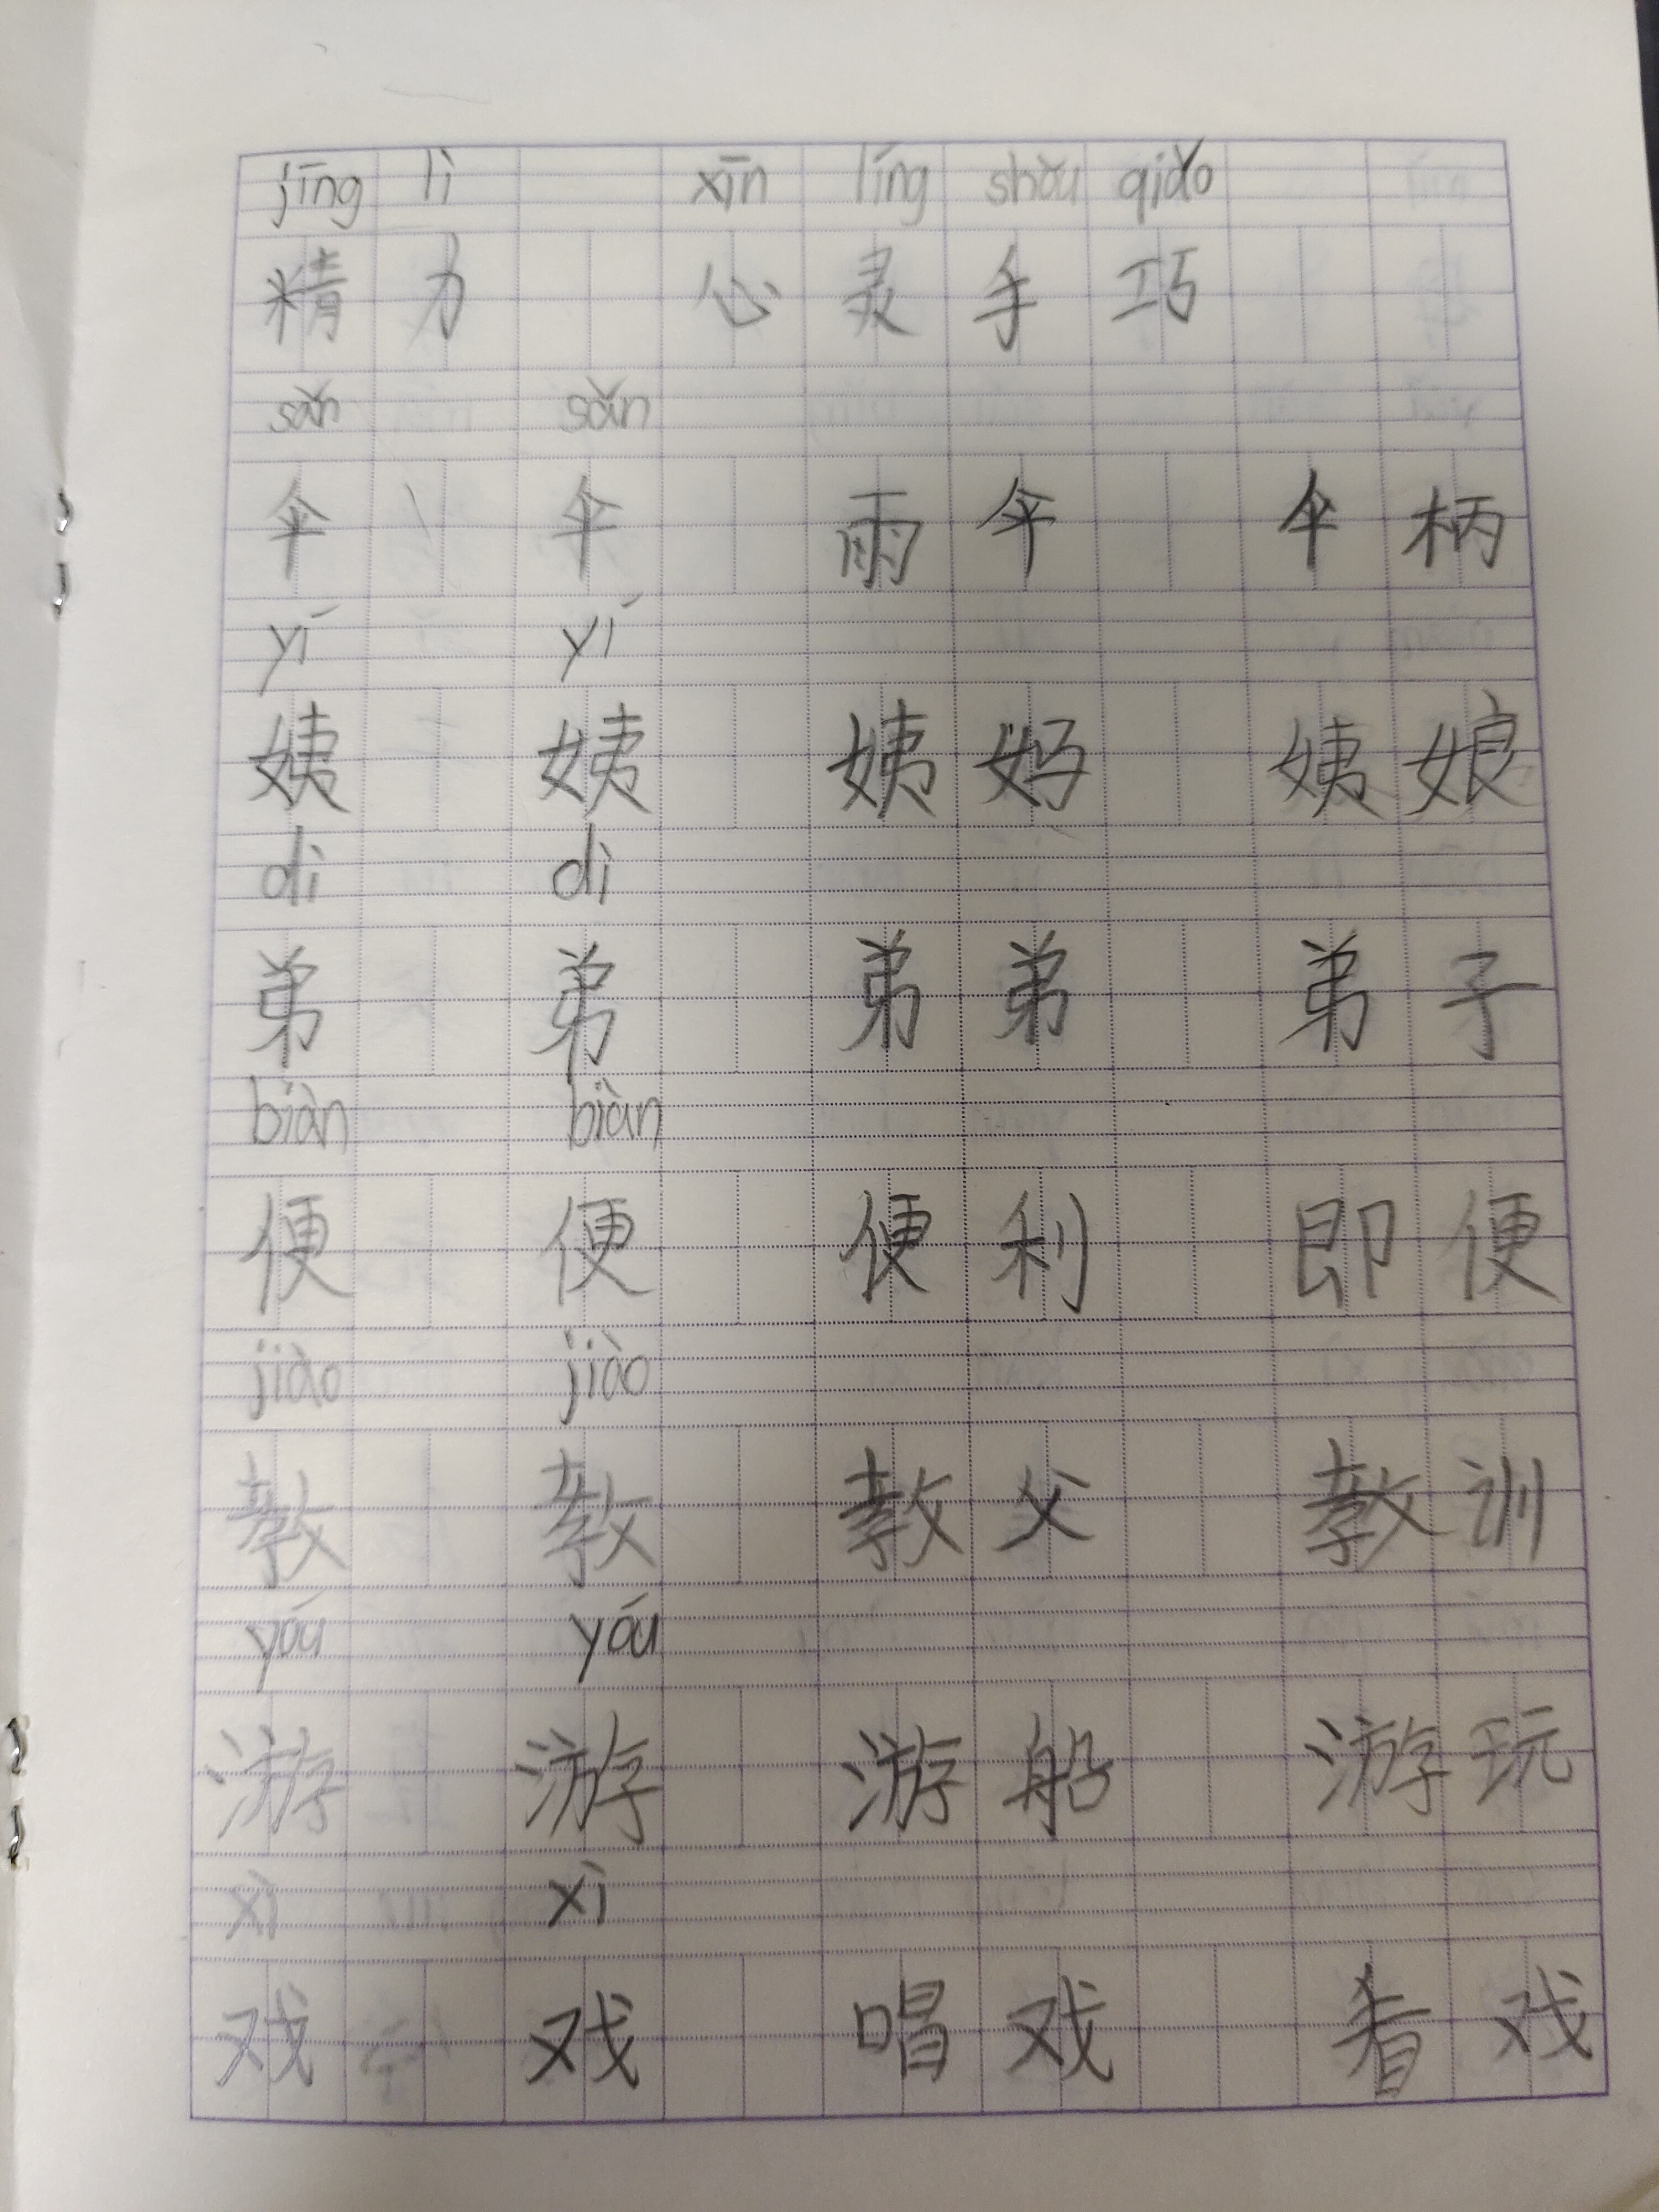 jīng lì xīn líng shǒu qiǎo
精力 心灵手巧
sǎn sǎn
伞 伞 雨伞 伞柄
yí yí
姨 姨 姨妈 姨娘
dì dì
弟 弟 弟弟 弟子
biàn biàn
便 便 便利 即便
jiào jiào
教 教 教父 教训
yóu yóu
游 游 游船 游玩
xì xì
戏 戏 唱戏 看戏